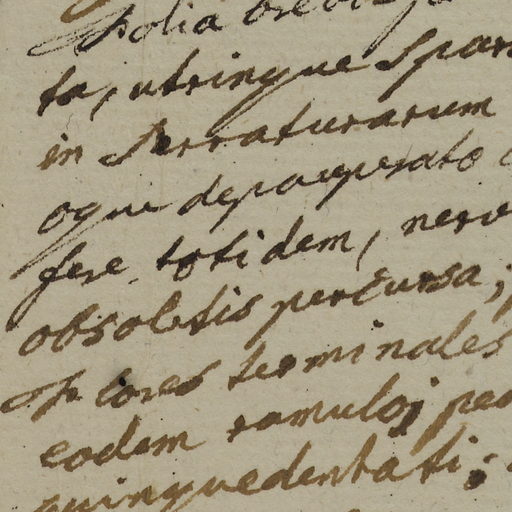 Folia
ta, utrinque spar
in serraturarum
oque depauperato
fere totidem, nerv
obsoletis percursa,
Flores terminales
eodem ramuloj ped
quinquedentati;